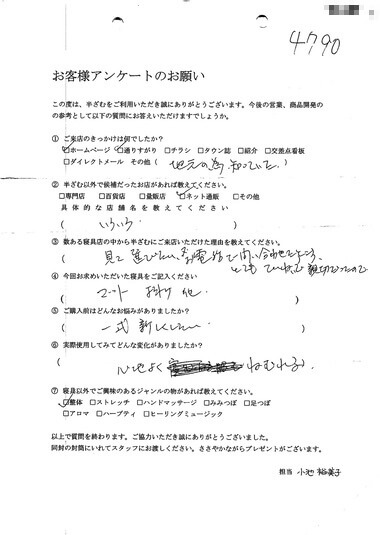 4790
お客様アンケートのお願い
この度は、半ざむをご利用いただき誠にありがとうございます。今後の営業、商品開発の
の参考として以下の質問にお答えいただけますでしょうか。
① ご来店のきっかけは何でしたか？
☑ホームページ ☑通りすがり □チラシ □タウン誌 □紹介 □交差点看板
□ダイレクトメール その他（ 地元の為 知っていた ）
② 半ざむ以外で候補だったお店があれば教えてください。
□専門店 □百貨店 □量販店 ☑ネット通販 □その他
具体的な店舗名を教えてください
( いろいろ
③ 数ある寝具店の中から半ざむにご来店いただけた理由を教えてください。
( 見て 選びたい、電話で問い合わせたところ、
とても ていねいで 親切だったので
④ 今回お求めいただいた寝具をご記入ください
( マット 掛け 他
⑤ ご購入前はどんなお悩みがありましたか？
( 一式 新しくしたい
⑥ 実際使用してみてどんな変化がありましたか？
( 心地よく ねむれる )
⑦ 寝具以外でご興味のあるジャンルの物があれば教えてください。
☑整体 □ストレッチ □ハンドマッサージ □みみつぼ □足つぼ
□アロマ □ハーブティ □ヒーリングミュージック
以上で質問を終わります。ご協力いただき誠にありがとうございました。
同封の封筒にいれてスタッフにお渡しください。ささやかながらプレゼントがございます。
担当 小池 裕美子